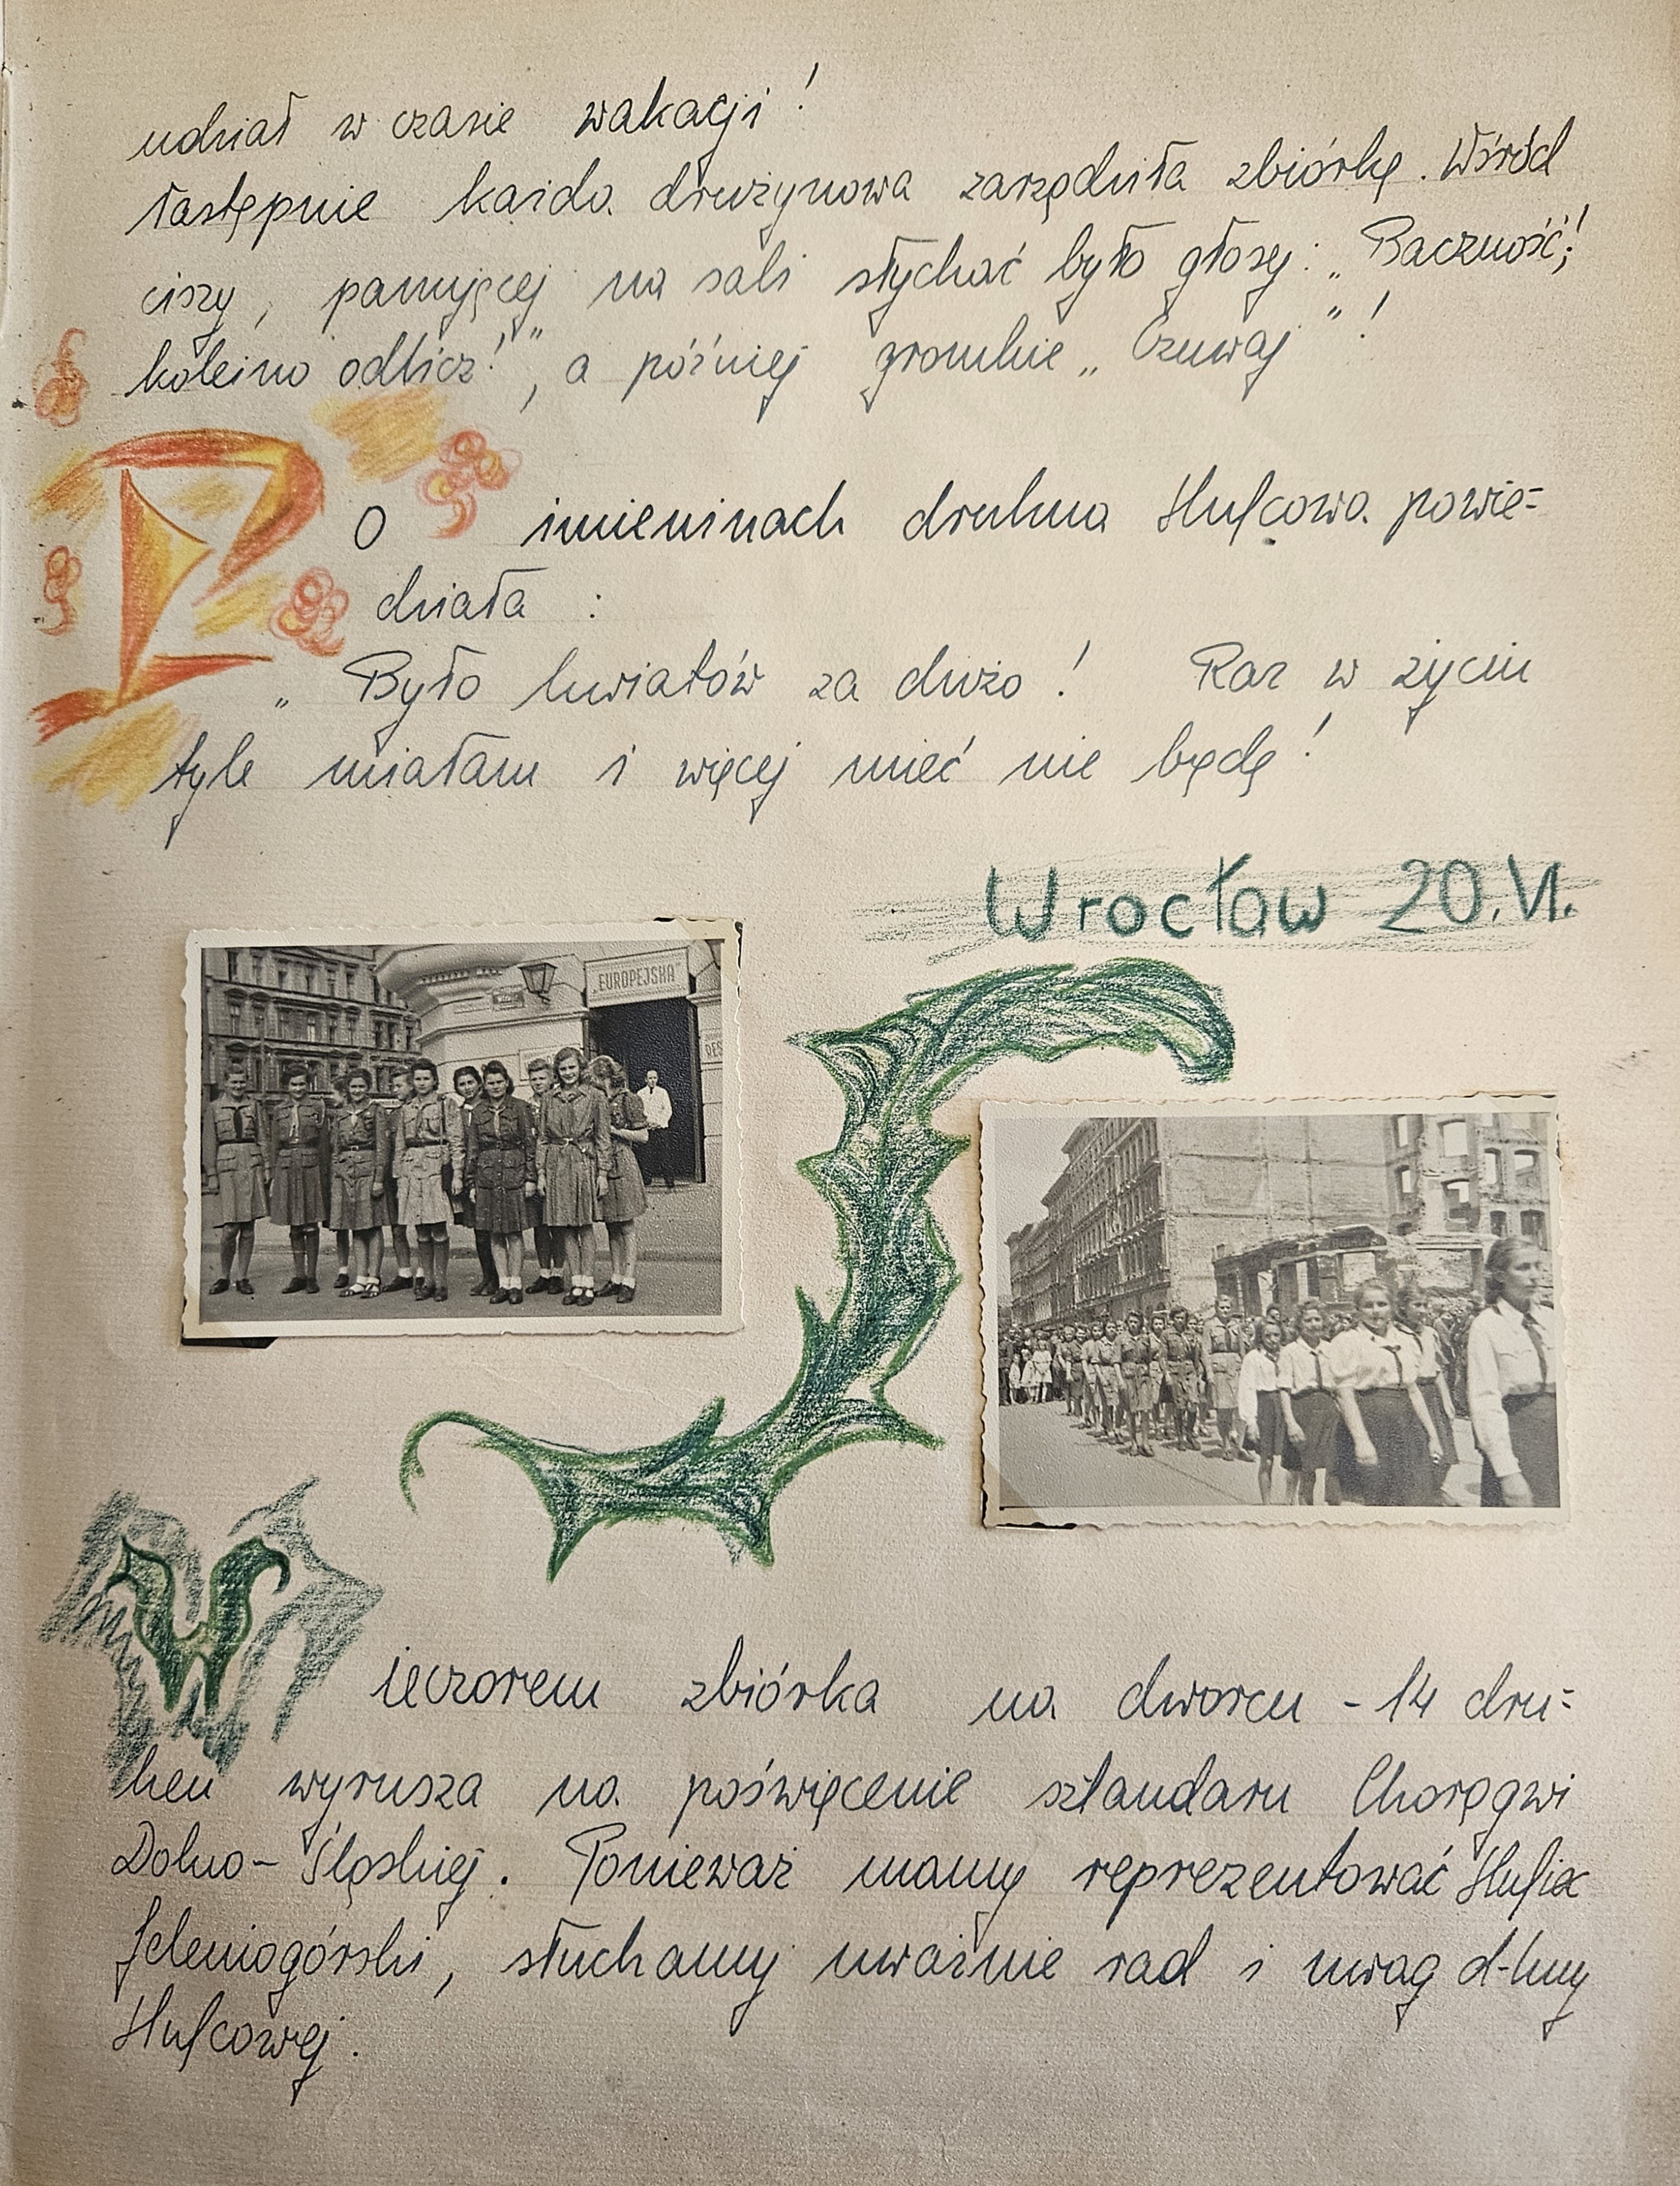 udział w czasie wakacji!
Następnie każda drużynowa zarządziła zbiórkę. Wśród
ciszy, panującej na sali słychać było głosy: „Baczność!
kolejno odlicz!", a później gromkie „Czuwaj"!
PO imieninach druhna Hufcowa powie=
działa :
„Było kwiatów za dużo! Raz w życiu
tyle miałam i więcej mieć nie będę!
Wrocław 20.VI.
„EUROPEJSKA"
Wieczorem zbiórka na dworcu - 14 dru=
hen wyrusza na poświęcenie sztandaru Chorągwi
Dolno-Śląskiej. Ponieważ mamy reprezentować Hufiec
Jeleniogórski, słuchamy uważnie rad i uwag d-hny
Hufcowej.